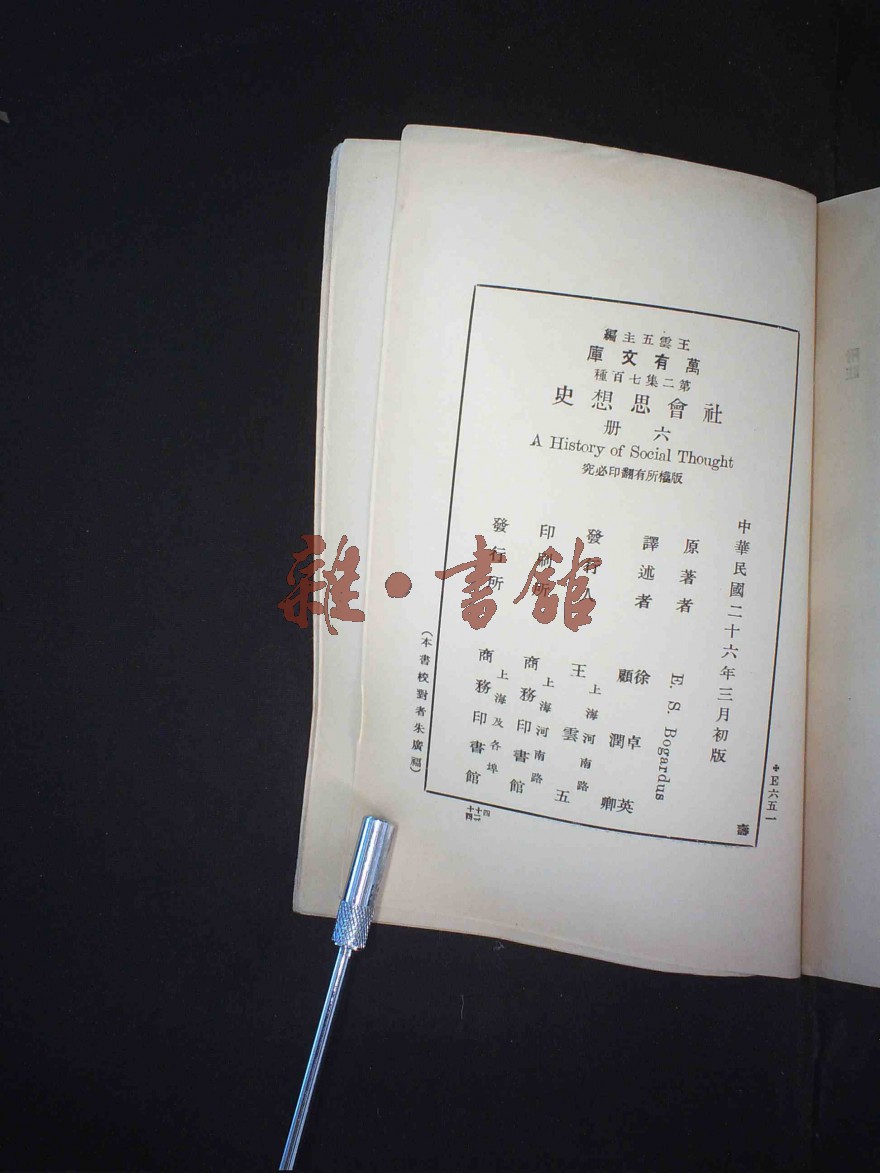 王雲五主編
萬有文庫
第二集七百種
社會思想史
六册
A History of Social Thought
版權所有翻印必究
中華民國二十六年三月初版
原著者 E. S. Bogardus
譯述者 徐卓英 顧潤卿
發行人 上海河南路 王雲五
印刷所 上海河南路 商務印書館
發行所 上海及各埠 商務印書館
(本書校對者朱廣福)
E六五一
雜·書舘